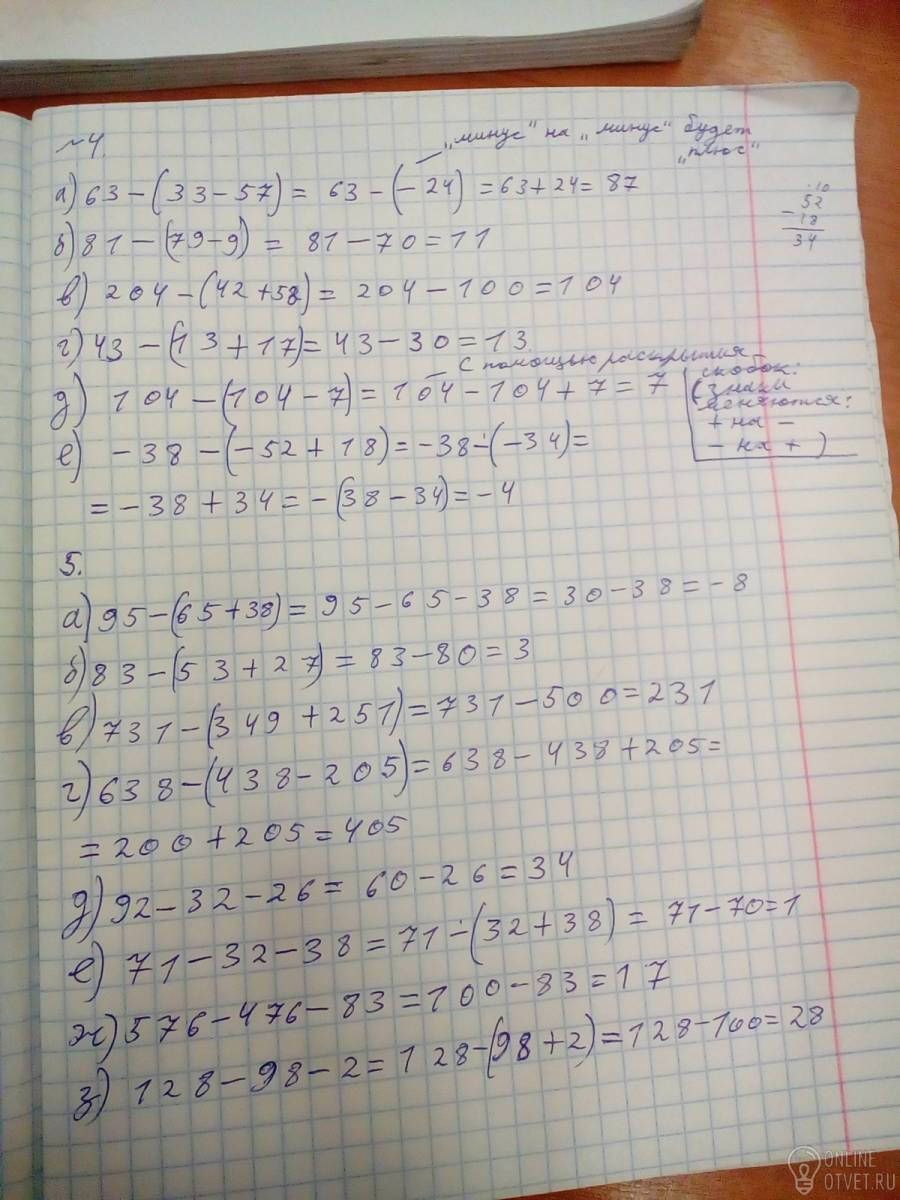 №4.
„минус“ на „минус“ будет
„плюс“
а) 63-(33-57)= 63-(-24) =63+24= 87
·10
52
- 18
34
б) 81-(79-9) = 81-70=11
в) 204-(42+58)= 204-100=104
г) 43-(13+17)=43-30=13
С помощью раскрытия
скобок:
д) 104-(104-7)=104-104+7=7
(знаки
меняются:
+ на -
- на + )
е) -38-(-52+18)=-38-(-34)=
=-38+34=-(38-34)=-4
5.
а) 95-(65+38)=95-65-38=30-38=-8
б) 83-(53+27)=83-80=3
в) 731-(349+251)=731-500=231
г) 638-(438-205)=638-438+205=
=200+205=405
д) 92-32-26= 60-26=34
е) 71-32-38=71-(32+38)= 71-70=1
ж) 576-476-83=100-83=17
з) 128-98-2=128-(98+2)=128-100=28
ONLINE
OTVET.RU